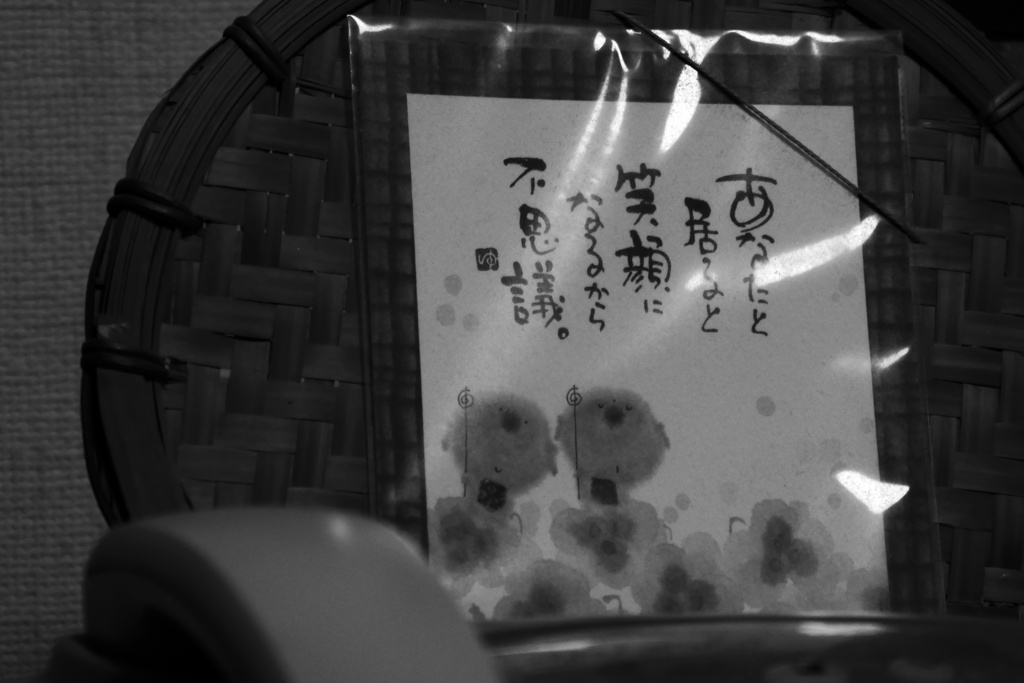 あなたと
居ると
笑顔に
なるから
不思議。
ゆ
あ
あ